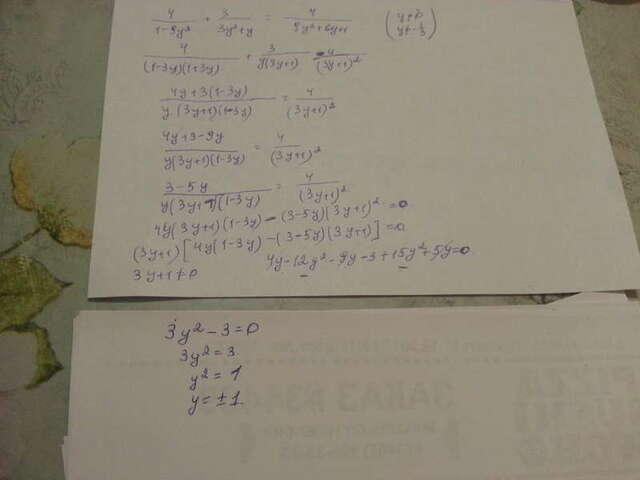 4/(1-9y²) + 3/(3y²+y) = 4/(9y²+6y+1) (y≠0
y≠-1/3)
4/((1-3y)(1+3y)) + 3/(y(3y+1)) = 4/(3y+1)²
(4y+3(1-3y))/(y(3y+1)(1-3y)) = 4/(3y+1)²
(4y+3-9y)/(y(3y+1)(1-3y)) = 4/(3y+1)²
(3-5y)/(y(3y+1)(1-3y)) = 4/(3y+1)²
4y(3y+1)(1-3y) - (3-5y)(3y+1)² = 0
(3y+1)[4y(1-3y) - (3-5y)(3y+1)] = 0
3y+1≠0 4y-12y²-9y-3+15y²+5y=0
3y²-3=0
3y²=3
y²=1
y=±1
ЗАКАЗ
PIZZA